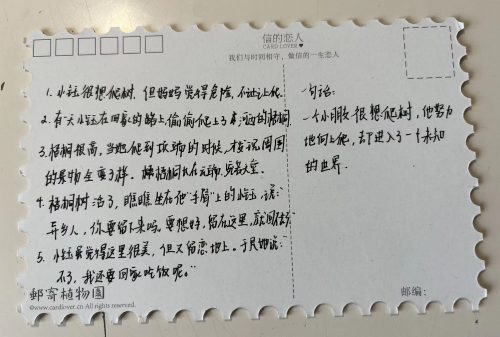 信的恋人
CARD LOVER
我们与时间相守,做信的一生恋人
1. 小钰很想爬树,但妈妈觉得危险,不让她爬
2. 有一天小钰在回家的路上,偷偷爬上了河边的梧桐
3. 梧桐很高,当她爬到顶端的时候,发现周围
的景物全变了样。
4. 梧桐树活了,瞧瞧坐在他"手臂"上的小钰,说:
异乡人,你要留下来吗。要想好,留在这里,就回不去
5. 小钰虽觉得这里很美,但又留恋地上。于是她说:
不了,我还要回家吃饭呢。"
郵寄植物園
©www.cardlover.cn All rights reserved.
一句话:
一个小朋友很想爬树,他努力
地向上爬,却进入了一个未知
的世界.
邮编: